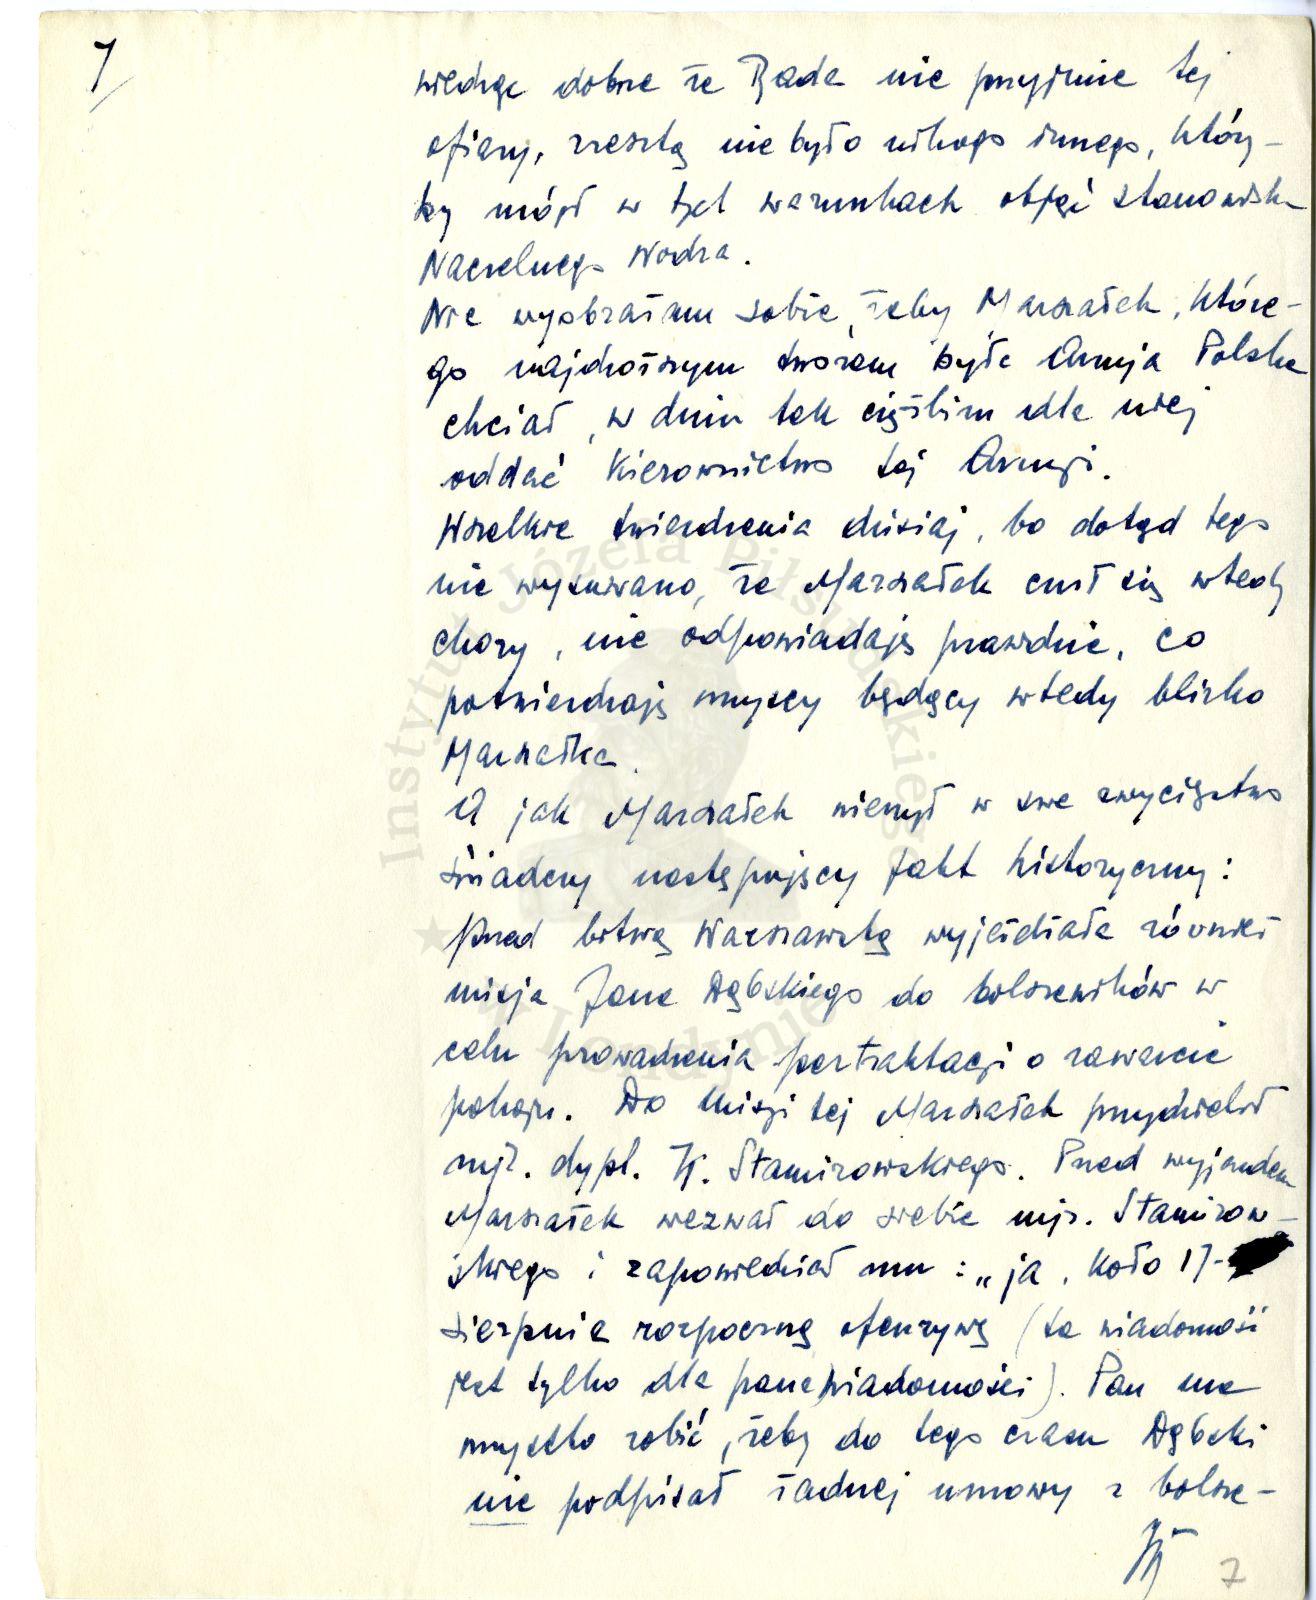 7/
wiedząc dobrze że Rada nie przyjmie tej
ofiary, zresztą nie było nikogo innego, któr-
by mógł w tych warunkach objąć stanowisko
Naczelnego Wodza.
Nie wyobrażam sobie, żeby Marszałek, które-
go najdroższym tworem była Armja Polska
chciał, w dniu tak ciężkim dla niej
oddać kierownictwo tej Armji.
Wszelkie twierdzenia dzisiaj, bo dotąd tego
nie wysuwano, że Marszałek czuł się wtedy
chory, nie odpowiadają prawdzie, co
potwierdzają wszyscy będący wtedy blisko
Marszałka.
A jak Marszałek wierzył w swe zwycięstwo
świadczy następujący fakt historyczny:
Przed bitwą Warszawską wyjeżdżała również
misja Jana Dąbskiego do bolszewików w
celu prowadzenia pertraktacji o zawarcie
pokoju. Do misji tej Marszałek przydzielił
mjr. dypl. K. Stamirowskiego. Przed wyjazdem
Marszałek wezwał do siebie mjr. Stamirow-
skiego i zapowiedział mu: „ja, koło 17-
sierpnia rozpoczną ofenzywę (ta wiadomość
jest tylko dla pana wiadomości). Pan ma
wszystko robić, żeby do tego czasu Dąbski
nie podpisał żadnej umowy z bolsze-
7
Instytut Józefa Piłsudskiego
★ w Londynie